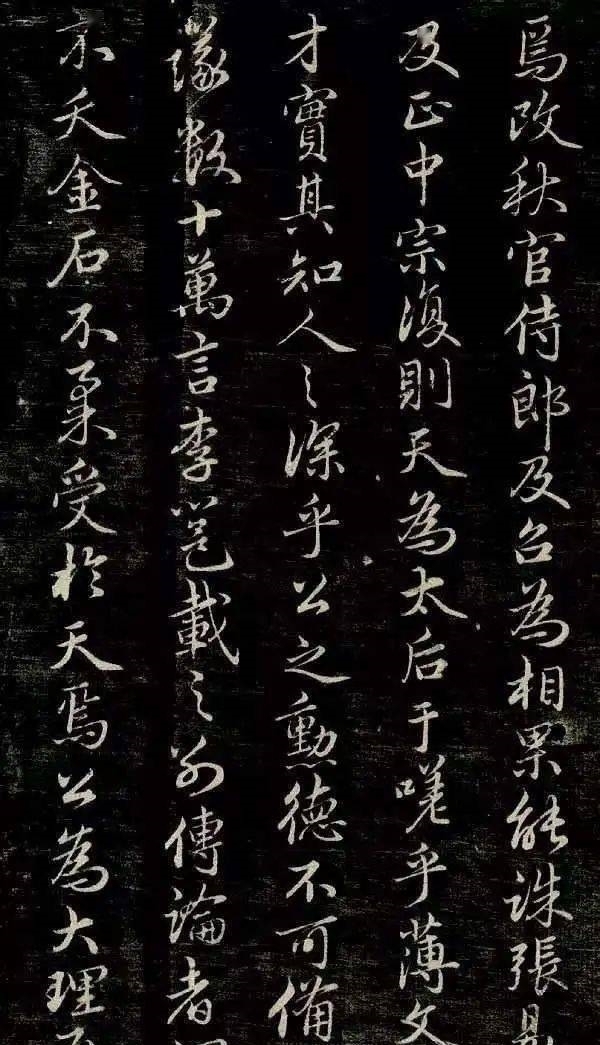 焉改秋官侍郎及召為相果能誅張易
反正中宗復則天為太后于嗟乎薄文
才實其知人之深乎公之勳德不可備
數十萬言李邕載之別傳論者
不夭金石不柔受於天焉公為大理